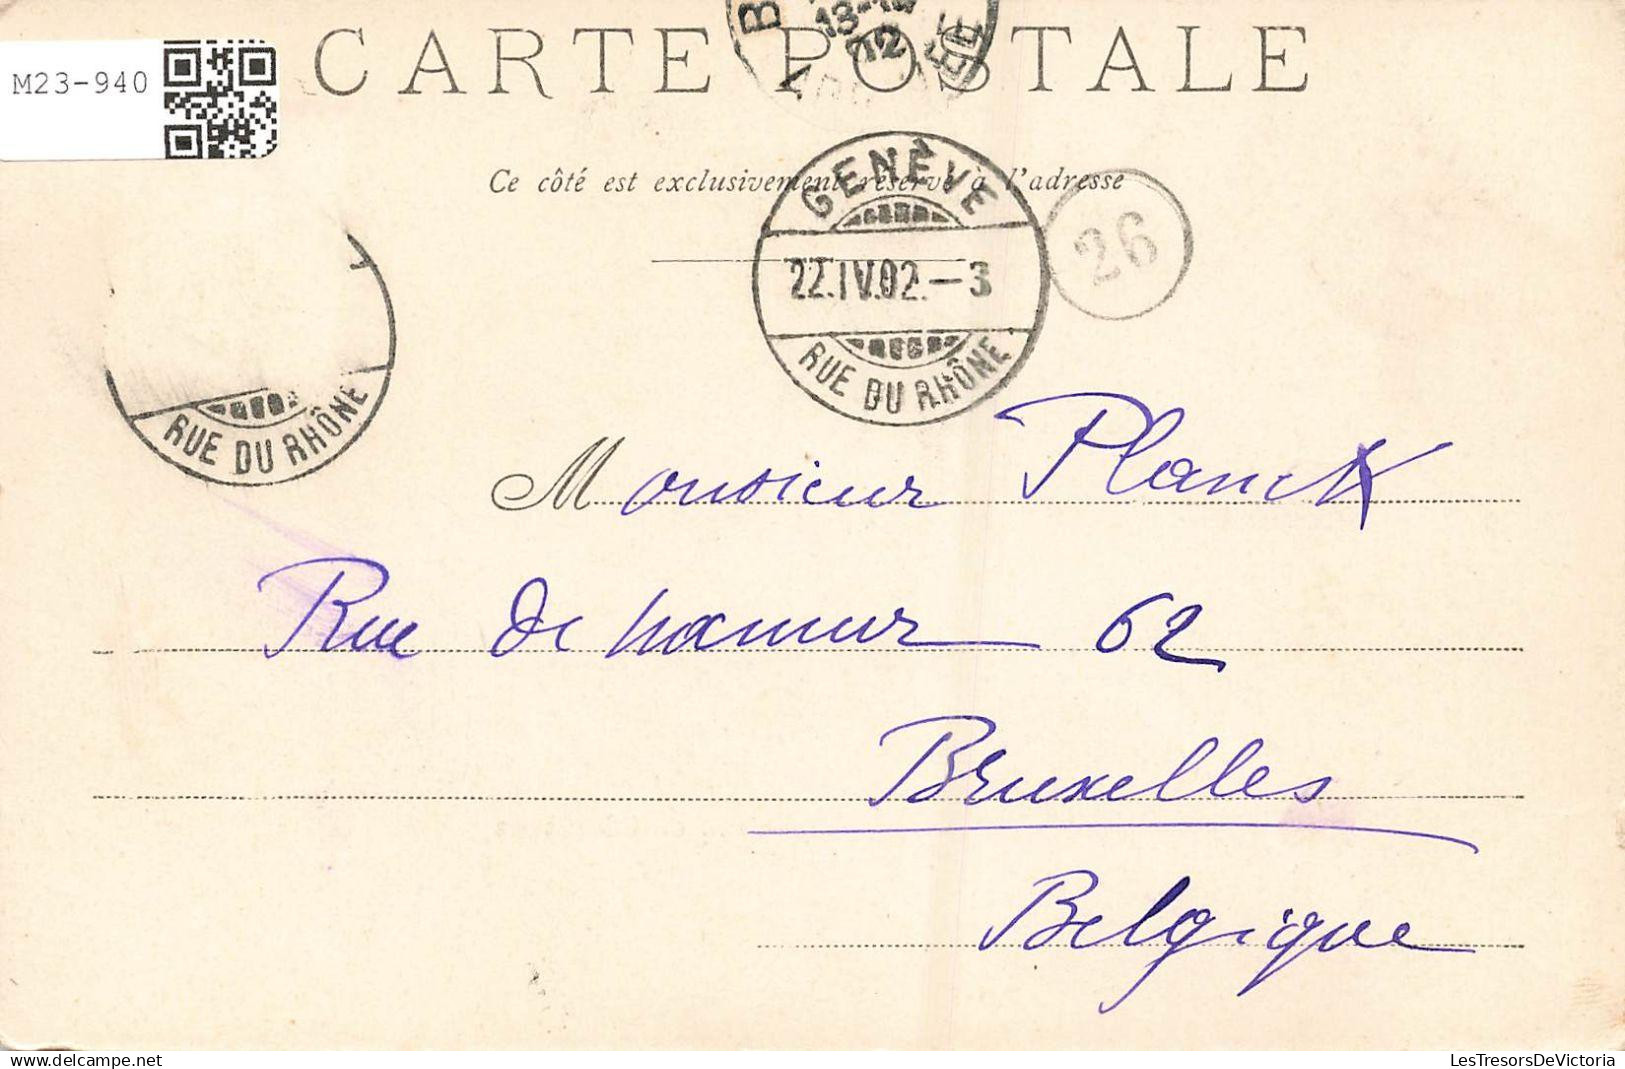 M23-940
CARTE POSTALE
Ce côté est exclusivement réservé à l'adresse
GENÈVE
22.IV.02.-3
RUE DU RHÔNE
26
RUE DU RHÔNE
Monsieur Planck
Rue de Namur 62
Bruxelles
Belgique
LesTresorsDeVictoria